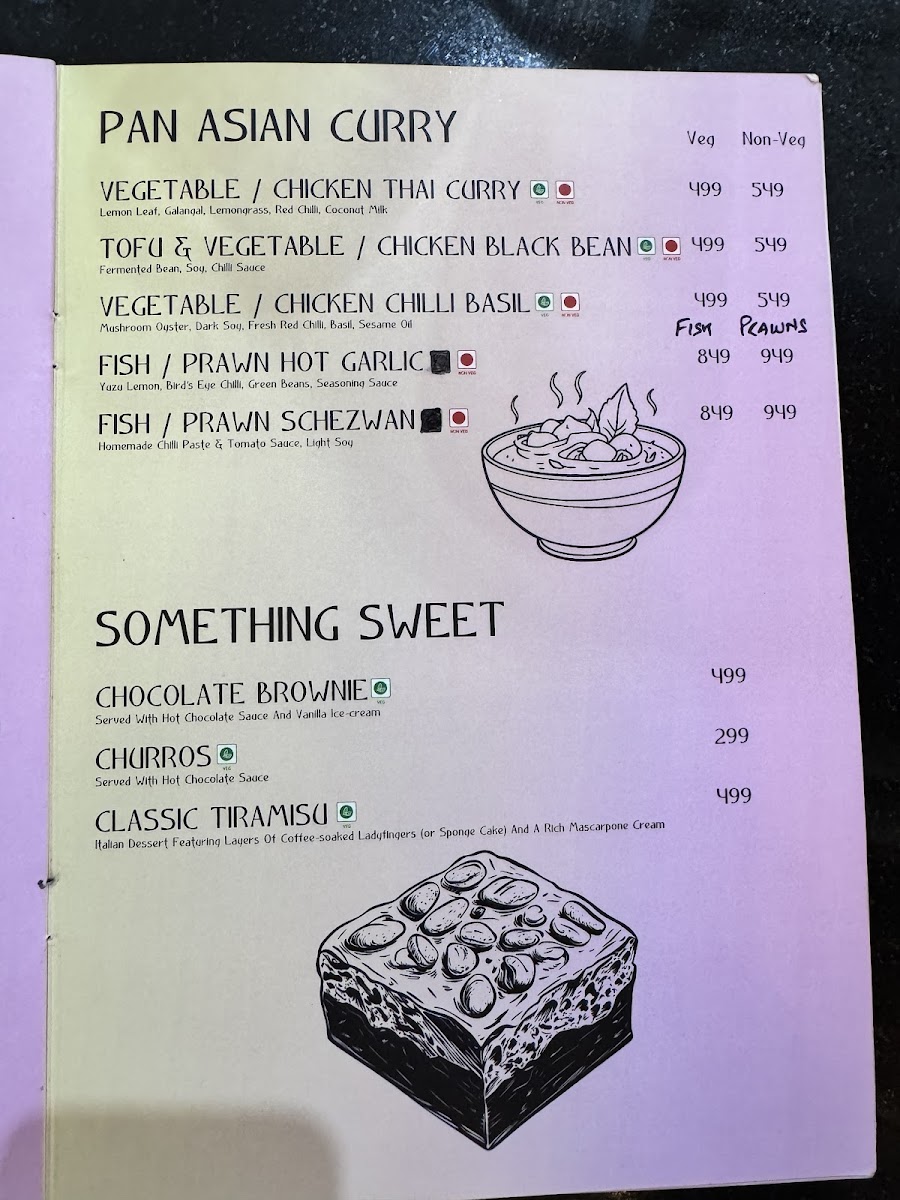 PAN ASIAN CURRY
Veg Non-Veg
VEGETABLE / CHICKEN THAI CURRY VEG NON VEG 499 549
Lemon Leaf, Galangal, Lemongrass, Red Chilli, Coconut Milk
TOFU & VEGETABLE / CHICKEN BLACK BEAN VEG NON VEG 499 549
Fermented Bean, Soy, Chilli Sauce
VEGETABLE / CHICKEN CHILLI BASIL VEG NON VEG 499 549
Mushroom Oyster, Dark Soy, Fresh Red Chilli, Basil, Sesame Oil
FISH PRAWNS
FISH / PRAWN HOT GARLIC NON VEG 849 949
Yuzu Lemon, Bird's Eye Chilli, Green Beans, Seasoning Sauce
FISH / PRAWN SCHEZWAN NON VEG 849 949
Homemade Chilli Paste & Tomato Sauce, Light Soy
SOMETHING SWEET
CHOCOLATE BROWNIE VEG 499
Served With Hot Chocolate Sauce And Vanilla Ice-cream
CHURROS VEG 299
Served With Hot Chocolate Sauce
CLASSIC TIRAMISU VEG 499
Italian Dessert Featuring Layers Of Coffee-soaked Ladyfingers (or Sponge Cake) And A Rich Mascarpone Cream